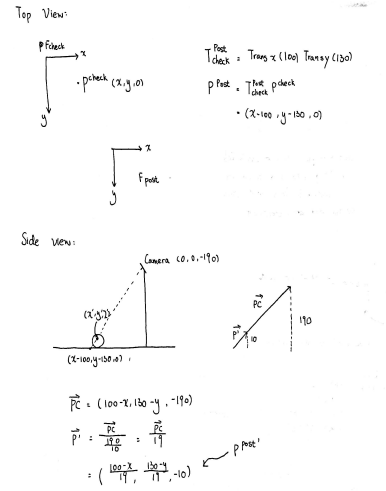 Top View:
P Fcheck
x
P^check (x,y,0)
y
T^Post_check = Trans x (100) Trans y (130)
P^Post = T^Post_check P^check
= (x-100, y-130, 0)
x
F post
y
Side view:
Camera (0,0,-190)
(x',y',z')
(x-100,y-130,0)
PC→
P'→
10
190
PC→ = (100-x, 130-y, -190)
P'→ = PC→ / (190/10) = PC→ / 19
= ( (100-x)/19 , (130-y)/19 , -10)
P^Post'